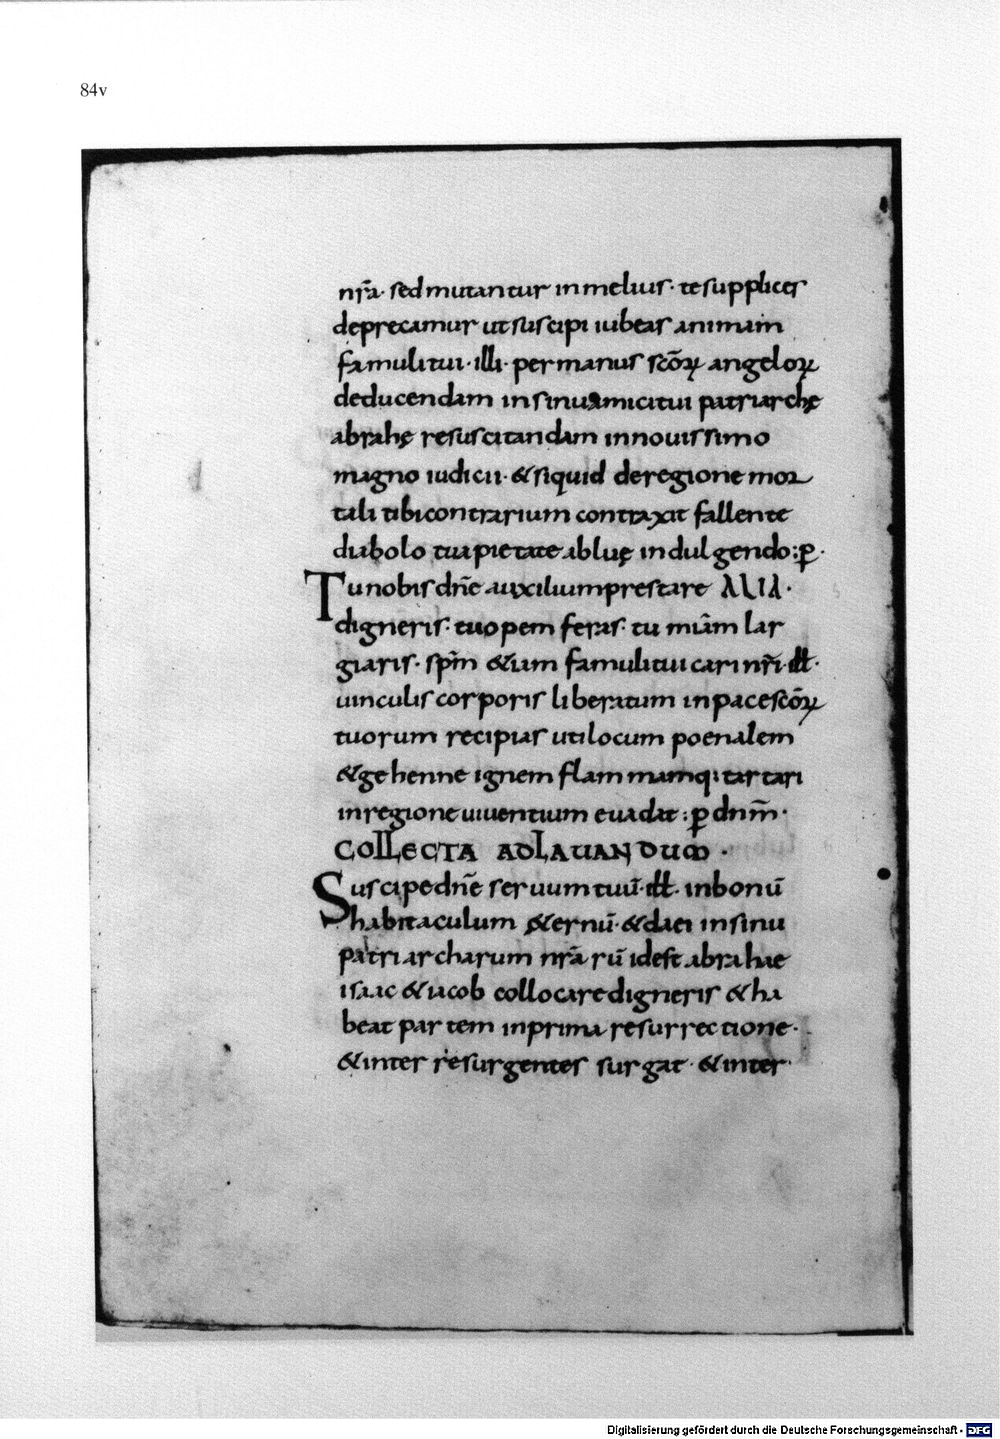 84v
nr̃a· sed mutantur inmelius· te supplices
deprecamur ut suscipi iubeas animam
famuli tui· illi· per manus scõꝝ angeloꝝ
deducendam in sinu amici tui patriarchę
abrahę resuscitandam in nouissimo
magno iudicii· & siquid deregione mor
tali tibi contrarium contraxit fallente
diabolo tua pietate abluę indulgendo:ꝑ·
Tu nobis dñe auxilium prestare ALIA·
digneris· tuopem feras· tu miãm lar
giaris· spm̃ &iam famuli tui cari nr̃i ill̶·
uinculis corporis liberatum in pace scõꝝ
tuorum recipias uti locum poenalem
& gehenne ignem flammamq; tartari
in regione uiuentium euadat: ꝑ dnm̃·
COLLECTA AD LAUANDUM·
Suscipe dñe seruum tuũ· ill̶· in bonũ
habitaculum &ernũ· & da ei in sinu
patriarcharum nr̃arũ id est abrahae
isaac & iacob collocare digneris & ha
beat partem in prima resurrectione·
& inter resurgentes surgat· & inter·
Digitalisierung gefördert durch die Deutsche Forschungsgemeinschaft - DFG